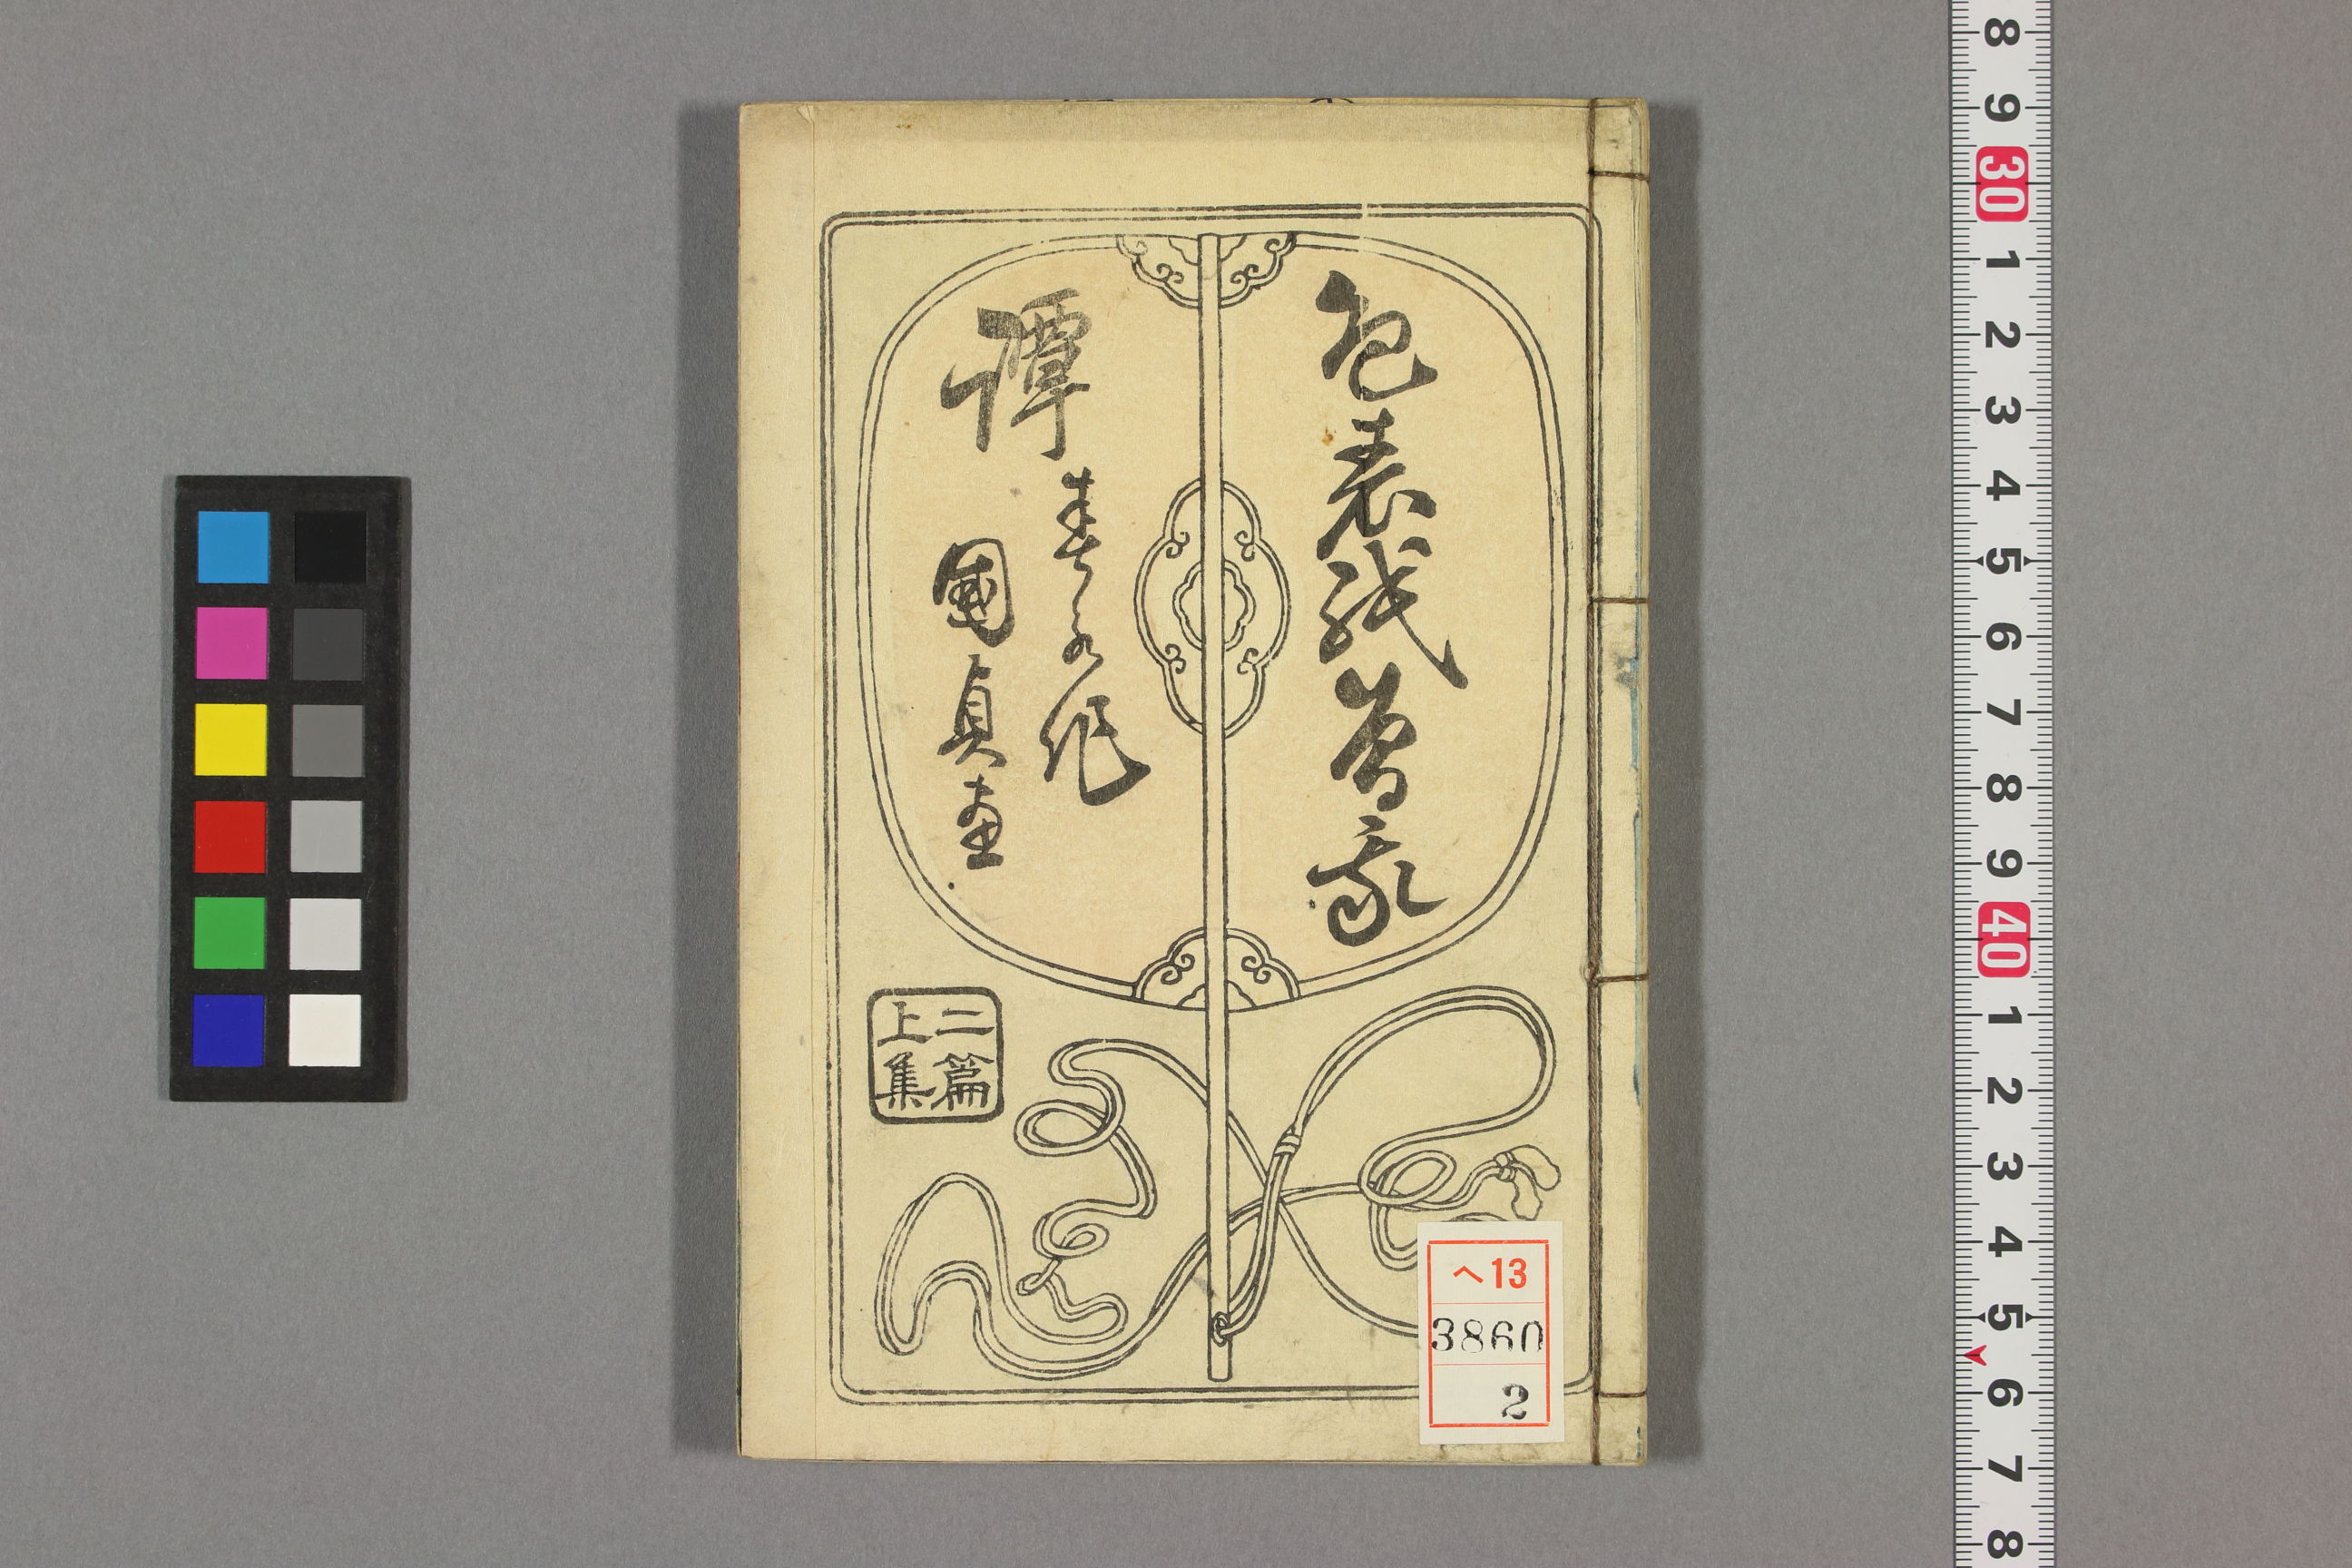 色表紙曽我
譚
春水作
國貞画
二篇
上集
ヘ13
3860
2
8 9 30 1 2 3 4 5 6 7 8 9 40 1 2 3 4 5 6 7 8